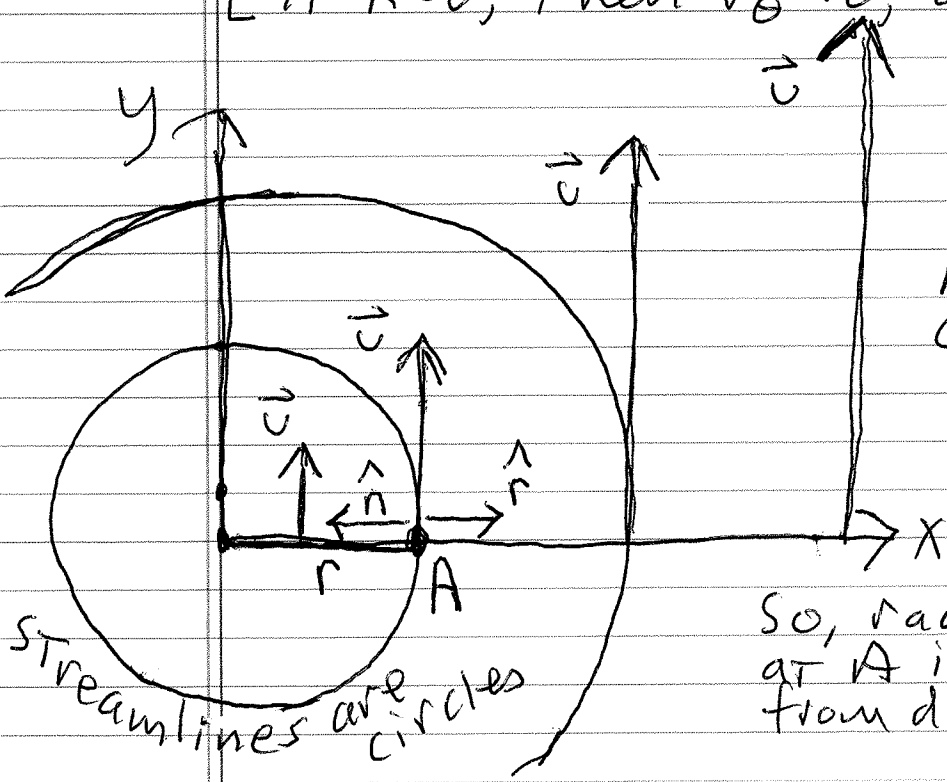 y
v⃗
v⃗
v⃗
v⃗
n̂
r̂
r
A
x
Streamlines are
circles
So,
at A i
from d